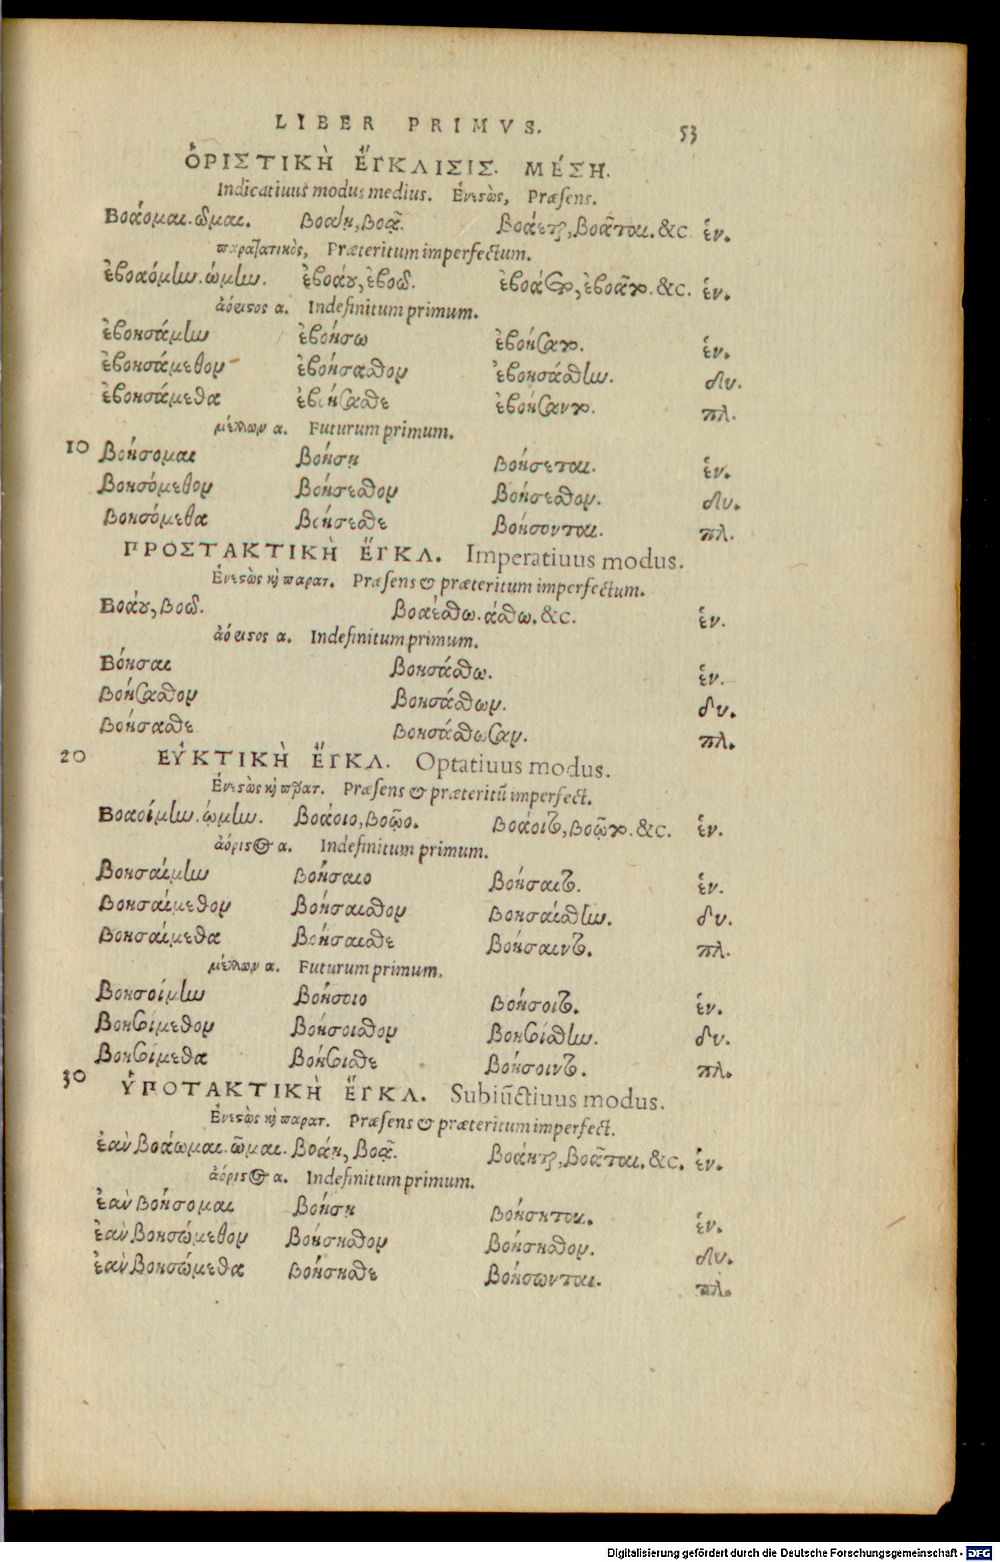 LIBER PRIMVS. 53
ὉΡΙΣΤΙΚῊ ἜΓΚΛΙΣΙΣ. ΜΈΣΗ.
Indicatiuus modus medius. Ἐνεστὼς, Præsens.
Βοάομαι.ῶμαι. βοάῃ, βοᾷ. βοάεται, βοᾶται. &c ἑν.
παρατατικὸς, Præteritum imperfectum.
ἐβοαόμην.ώμην. ἐβοάου, ἐβοῶ. ἐβοάετο, ἐβοᾶτο. &c. ἑν.
ἀόριστος α. Indefinitum primum.
ἐβοησάμην ἐβοήσω ἐβοήσατο. ἑν.
ἐβοησάμεθον ἐβοήσασθον ἐβοησάσθην. δυ.
ἐβοησάμεθα ἐβοήσασθε ἐβοήσαντο. πλ.
μέλλων α. Futurum primum.
10 Βοήσομαι βοήσῃ βοήσεται. ἑν.
βοησόμεθον βοήσεσθον βοήσεσθον. δυ.
βοησόμεθα βοήσεσθε βοήσονται. πλ.
ΠΡΟΣΤΑΚΤΙΚῊ ἜΓΚΛ. Imperatiuus modus.
Ἐνεστὼς κὶ παρατ. Præsens & præteritum imperfectum.
Βοάου, βοῶ. βοαέσθω.άσθω. &c. ἑν.
ἀόριστος α. Indefinitum primum.
Βόησαι βοησάσθω. ἑν.
βοήσασθον βοησάσθων. δυ.
βοήσασθε βοησάσθωσαν. πλ.
20 ΕΥ̓ΚΤΙΚῊ ἜΓΚΛ. Optatiuus modus.
Ἐνεστὼς κὶ παρατ. Præsens & præteritū imperfect.
Βοαοίμην.ῴμην. βοάοιο, βοῷο. βοάοιτο, βοῷτο. &c. ἑν.
ἀόριστος α. Indefinitum primum.
Βοησαίμην βοήσαιο βοήσαιτο. ἑν.
βοησαίμεθον βοήσαισθον βοησαίσθην. δυ.
βοησαίμεθα βοήσαισθε βοήσαιντο. πλ.
μέλλων α. Futurum primum.
Βοησοίμην βοήσοιο βοήσοιτο. ἑν.
βοησοίμεθον βοήσοισθον βοησοίσθην. δυ.
βοησοίμεθα βοήσοισθε βοήσοιντο. πλ.
30 ὙΠΟΤΑΚΤΙΚῊ ἜΓΚΛ. Subiūctiuus modus.
Ἐνεστὼς κὶ παρατ. Præsens & præteritum imperfect.
ἐὰν βοάωμαι.ῶμαι. βοάῃ, βοᾷ. βοάηται, βοᾶται. &c. ἑν.
ἀόριστος α. Indefinitum primum.
ἐὰν βοήσομαι βοήσῃ βοήσηται. ἑν.
ἐὰν βοησώμεθον βοήσησθον βοήσησθον. δυ.
ἐὰν βοησώμεθα βοήσησθε βοήσωνται. πλ.
Digitalisierung gefördert durch die Deutsche Forschungsgemeinschaft - DFG